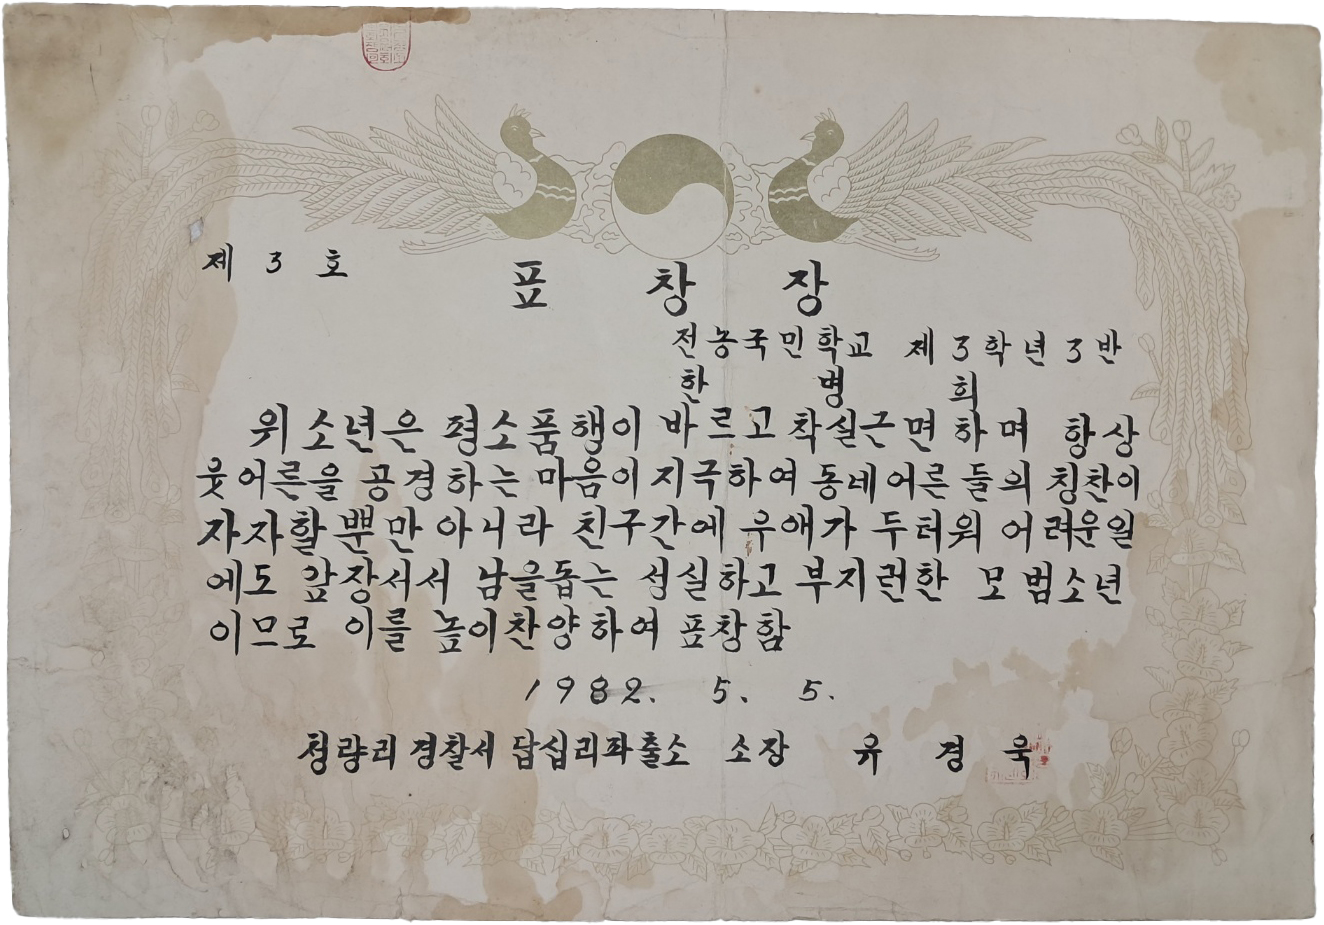 제 3 호
표 창 장
전농국민학교 제3학년3반
한 명 희
위 소년은 평소품행이 바르고 착실근면하며 항상
웃어른을 공경하는 마음이 지극하여 동네어른들의 칭찬이
자자할 뿐만 아니라 친구간에 우애가 두터워 어려운일
에도 앞장서서 남을돕는 성실하고 부지런한 모범소년
이므로 이를 높이찬양하여 표창함
1982. 5. 5.
청량리 경찰서 답십리파출소 소장 유 경 욱